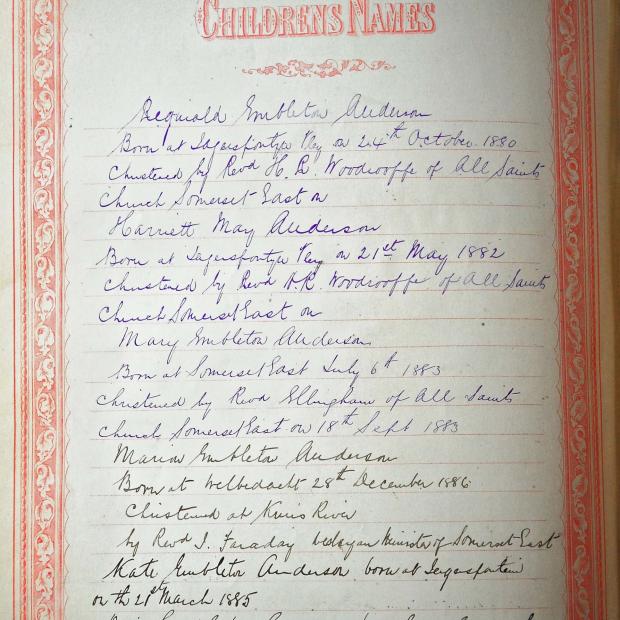 CHILDRENS NAMES
Reginald Embleton Anderson
Born at Jagersfontein Vley on 24th October 1880
Christened by Revd H. R. Woodrooffe of All Saints
Church Somerset East on
Harriett May Anderson
Born at Jagersfontein Vley on 21st May 1882
Christened by Revd H.R. Woodrooffe of All Saints
Church Somerset East on
Mary Embleton Anderson
Born at Somerset East July 6th 1883
Christened by Revd Ellingham of All Saints
Church Somerset East on 18th Sept 1883
Marion Embleton Anderson
Born at Welbedacht 28th December 1886
Christened at Kuis River
by Revd J. Faraday Wesleyan Minister of Somerset East
Kate Embleton Anderson born at
on the 21st March 1885